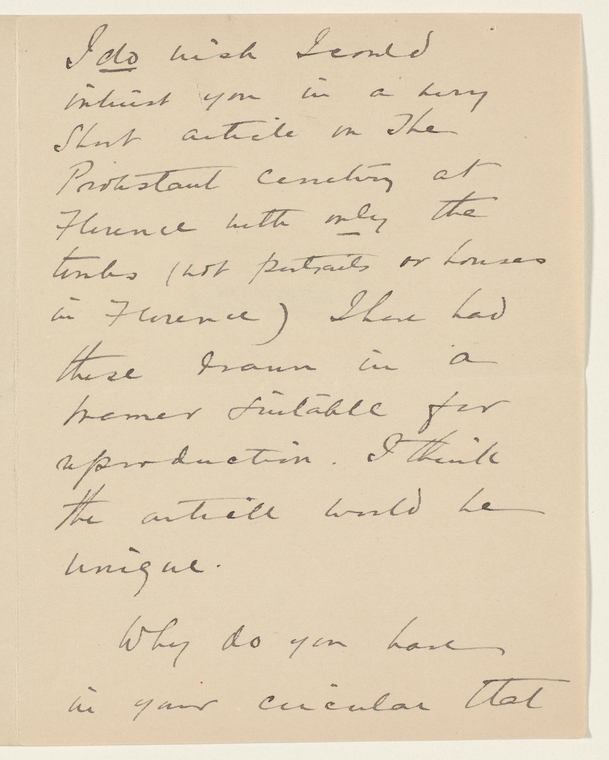 I do wish I could
interest you in a very
Short article on The
Protestant Cemetery at
Florence with only the
tombs (not portraits or houses
in Florence) I have had
these drawn in a
manner suitable for
reproduction. I think
the article would be
unique.
Why do you have
in your circular that